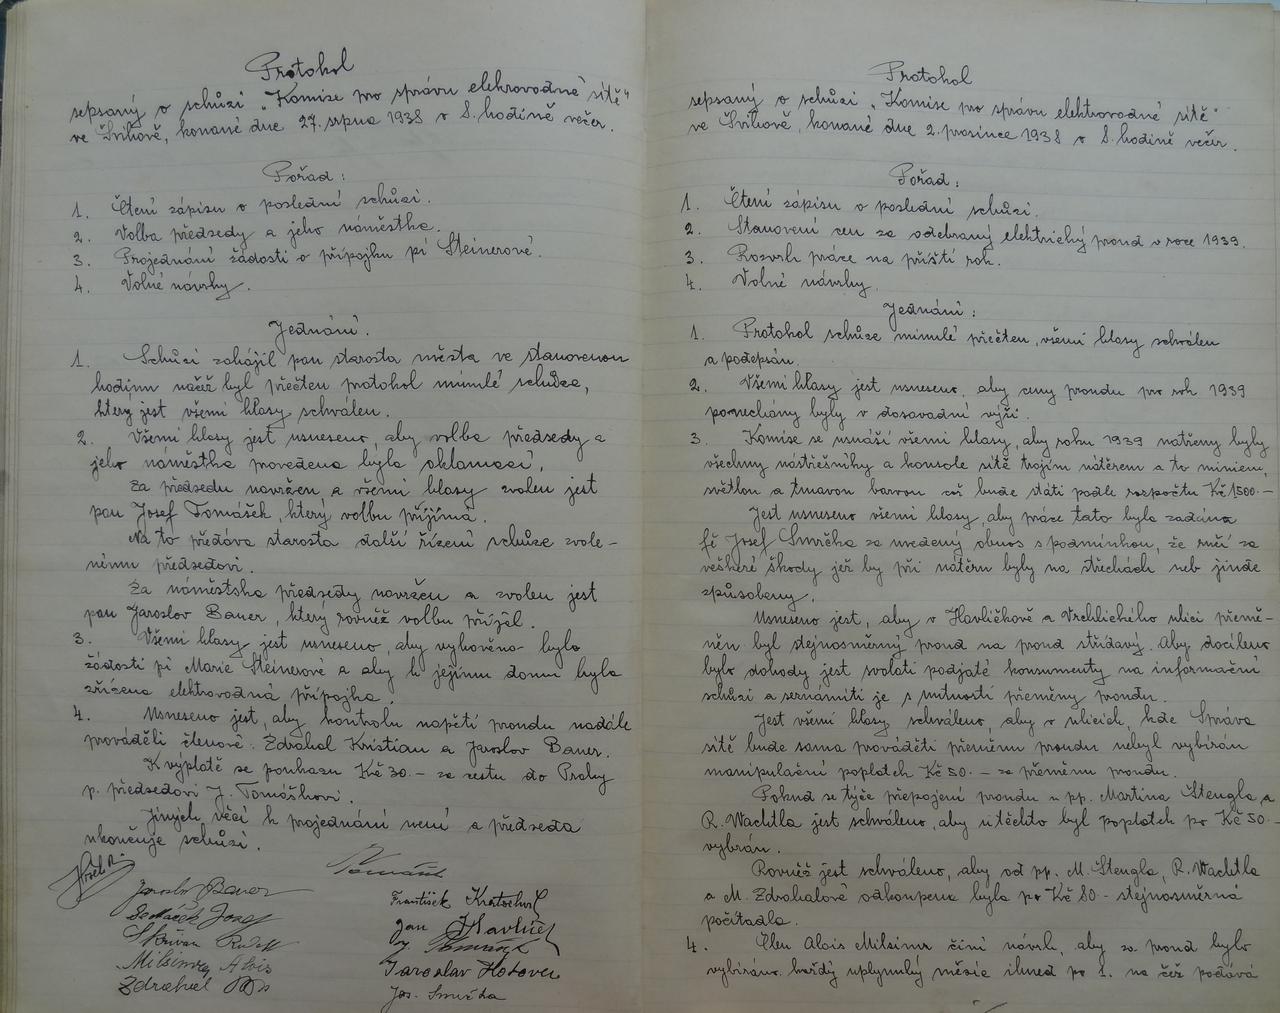 Protokol
sepsaný o schůzi „Komise pro správu elektrovodné sítě"
ve Švihově, konané dne 27. srpna 1938 v 8. hodině večer.
Pořad:
1. Čtení zápisu o poslední schůzi.
2. Volba předsedy a jeho náměstka.
3. Projednání žádosti o přípojku pí Steinerové.
4. Volné návrhy.
Jednání.
1. Schůzi zahájil pan starosta města ve stanovenou
hodinu načež byl přečten protokol minulé schůze,
který jest všemi hlasy schválen.
2. Všemi hlasy jest usneseno, aby volba předsedy a
jeho náměstka provedena byla aklamací.
Za předsedu navržen a všemi hlasy zvolen jest
pan Josef Tomášek, který volbu přijímá.
Na to předává starosta další řízení schůze zvole-
nému předsedovi.
Za náměstka předsedy navržen a zvolen jest
pan Jaroslav Bauer, který rovněž volbu přijal.
3. Všemi hlasy jest usneseno, aby vyhověno bylo
žádosti pí Marie Steinerové a aby k jejímu domu byla
zřízena elektrovodná přípojka.
4. Usneseno jest, aby kontrolu napětí proudu nadále
prováděli členové: Zdrahal Kristian a Jaroslav Bauer.
K výplatě se poukazu Kč 30.- za cestu do Prahy
p. předsedovi J. Tomáškovi.
Jiných věcí k projednání není a předseda
ukončuje schůzi.
Jaroslav Bauer
Sedláček Josef
Skřivan Rudolf
Milsimer Alois
Zdrahal
Tomášek
František Kratochvíl
Jan Havlíček
J. Tomášek
Jaroslav Hotovec
Jos. Smrčka
Protokol
sepsaný o schůzi „Komise pro správu elektrovodné sítě"
ve Švihově, konané dne 2. prosince 1938 v 8. hodině večer.
Pořad:
1. Čtení zápisu o poslední schůzi.
2. Stanovení cen za odebraný elektrický proud v roce 1939.
3. Rozvrh práce na příští rok.
4. Volné návrhy.
Jednání:
1. Protokol schůze minulé přečten, všemi hlasy schválen
a podepsán.
2. Všemi hlasy jest usneseno, aby ceny proudu pro rok 1939
ponechány byly v dosavadní výši.
3. Komise se usnáší všemi hlasy, aby roku 1939 natřeny byly
všechny nástřešníky a konsole sítě trojím nátěrem a to miniem,
světlou a tmavou barvou což bude státi podle rozpočtu Kč 1500.-
Jest usneseno všemi hlasy, aby práce tato byla zadána
fě Josef Smrčka za uvedený obnos s podmínkou, že ručí za
veškeré škody jež by při nátěru byly na střechách neb jinde
způsobeny.
Usneseno jest, aby v Havlíčkově a Vrchlického ulici přemě-
něn byl stejnosměrný proud na proud střídavý. Aby docíleno
bylo dohody jest svolati podjaté konsumenty na informační
schůzi a seznámiti je s nutností přeměny proudu.
Jest všemi hlasy schváleno, aby v ulicích, kde Správa
sítě bude sama prováděti přeměnu proudu nebyl vybírán
manipulační poplatek Kč 50.- za přeměnu proudu.
Pokud se týče přepojení proudu u pp. Martina Štengla a
R. Wachtla jest schváleno, aby u těchto byl poplatek po Kč 50.-
vybrán.
Rovněž jest schváleno, aby od pp. M. Štengla, R. Wachtla
a M. Zdrahalové odkoupena byla po Kč 80.- stejnosměrná
počítadla.
4. Člen Alois Milsimer činí návrh, aby za proud bylo
vybíráno každý uplynulý měsíc ihned po 1. na čež podává